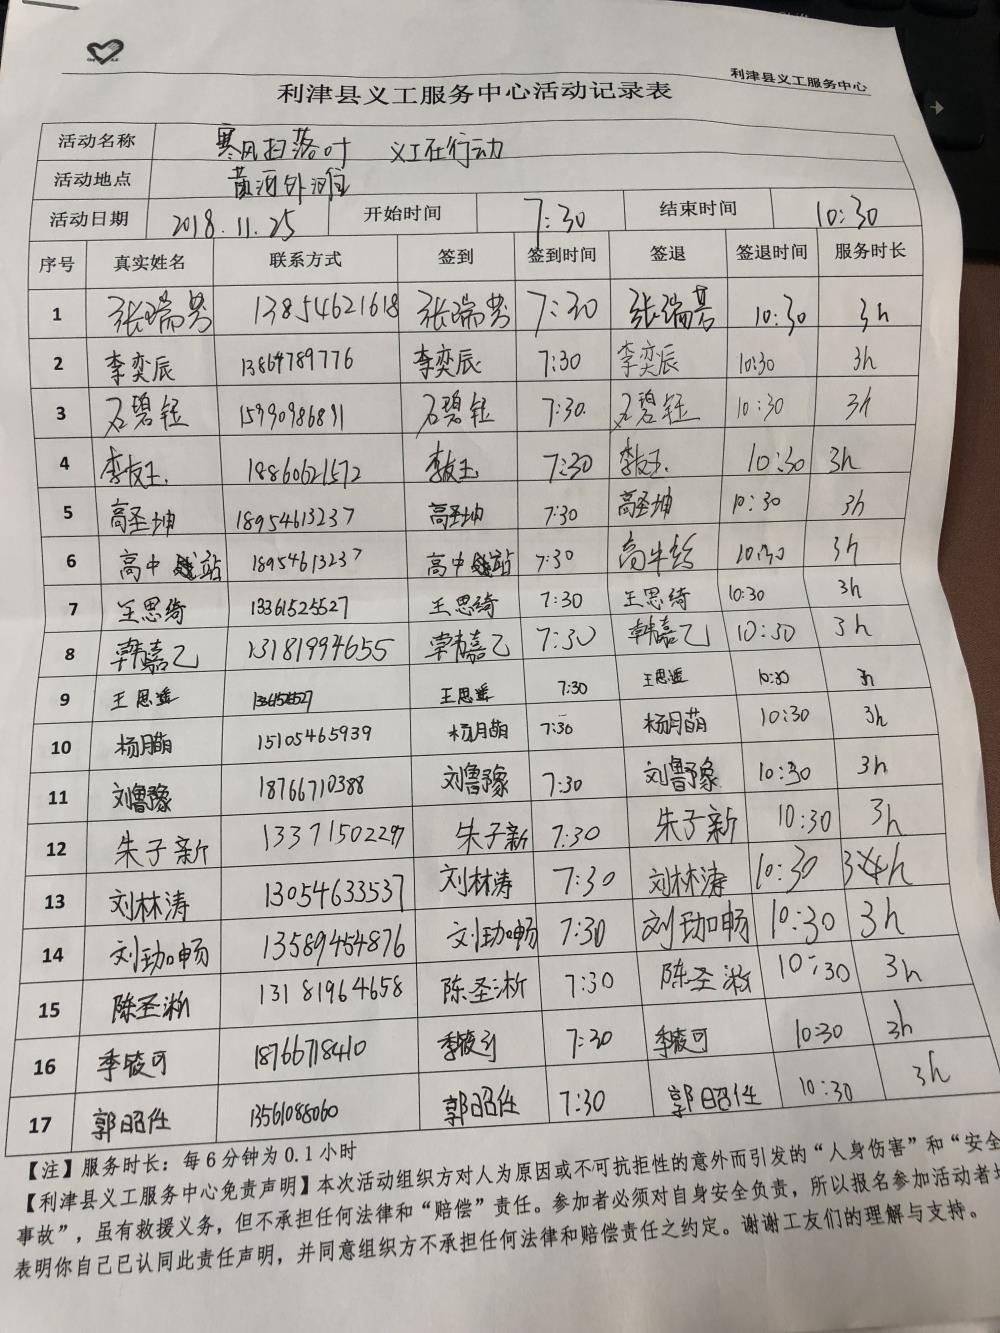 利津县义工服务中心
利津县义工服务中心活动记录表
活动名称 寒风扫落叶 义工在行动
活动地点 黄河外滩
活动日期 2018.11.25 开始时间 7:30 结束时间 10:30
序号 真实姓名 联系方式 签到 签到时间 签退 签退时间 服务时长
1 张瑞芳 13854621618 张瑞芳 7:30 张瑞芳 10:30 3h
2 李奕辰 13864789776 李奕辰 7:30 李奕辰 10:30 3h
3 石碧钰 石碧钰 7:30 石碧钰 10:30 3h
4 18860621572 7:30 10:30 3h
5 高圣坤 18954613237 高圣坤 7:30 高圣坤 10:30 3h
6 高中 站 18954613237 高中 站 7:30 10:30 3h
7 王思绮 13361525527 王思绮 7:30 王思绮 10:30 3h
8 韩嘉乙 13181994655 韩嘉乙 7:30 韩嘉乙 10:30 3h
9 王思遥 王思遥 7:30 王思遥 10:30 3h
10 杨月萌 15105465939 杨月萌 7:30 杨月萌 10:30 3h
11 刘鲁豫 18766710388 刘鲁豫 7:30 刘鲁豫 10:30 3h
12 朱子新 朱子新 7:30 朱子新 10:30 3h
13 刘林涛 13054633537 刘林涛 7:30 刘林涛 10:30 3h
14 刘珈畅 13589454876 刘珈畅 7:30 刘珈畅 10:30 3h
15 陈圣淅 13181964658 陈圣淅 7:30 陈圣淅 10:30 3h
16 18766718410 7:30 10:30 3h
17 郭昭任 13561088060 郭昭任 7:30 郭昭任 10:30 3h
【注】服务时长：每6分钟为0.1小时
【利津县义工服务中心免责声明】本次活动组织方对人为原因或不可抗拒性的意外而引发的“人身伤害”和“安全
事故”，虽有救援义务，但不承担任何法律和“赔偿”责任。参加者必须对自身安全负责，所以报名参加活动者
表明你自己已认同此责任声明，并同意组织方不承担任何法律和赔偿责任之约定。谢谢工友们的理解与支持。